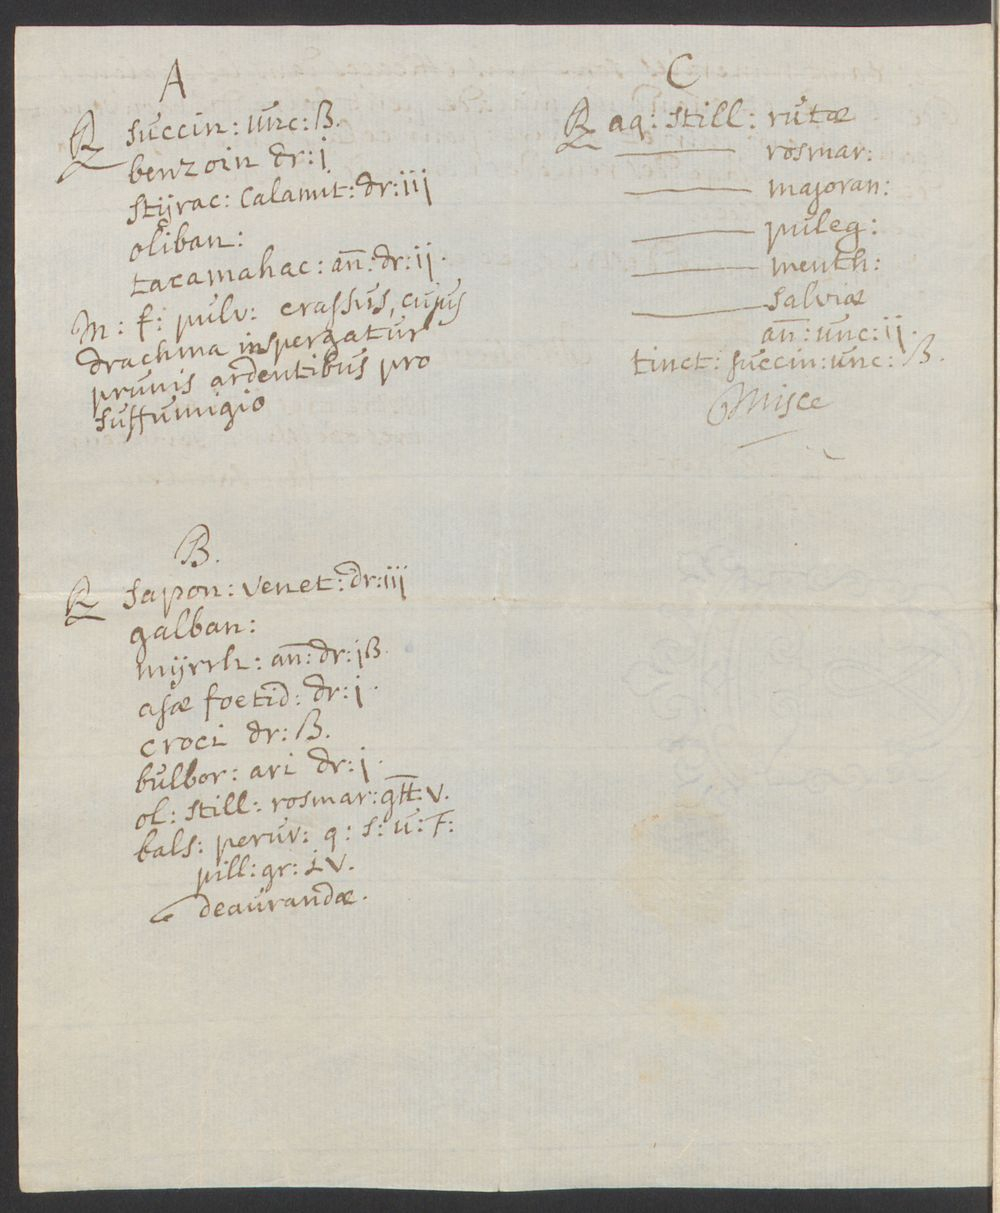 A
℞ succin: unc: ß.
benzoin dr: j
stÿrac: Calamit: dr: iij
oliban:
tacamahac: an̄: dr: ij.
M: f: pulv: crassus, cujus
drachma inspergatur
prunis ardentibus pro
suffumigio
B.
℞ sapon: venet: dr: iij
galban:
mÿrrh: an̄: dr: jß.
asæ foetid: dr: j.
croci dr: ß.
bulbor: ari dr: j.
ol: still: rosmar: gtt: v.
bals: peruv: q: s: u: F:
pill: gr: iv.
deaurandæ.
C
℞ aq: still: rutæ
——— rosmar:
——— majoran:
——— puleg:
——— menth:
——— salviæ
an̄: unc: ij.
tinct: succin: unc: ß.
Misce